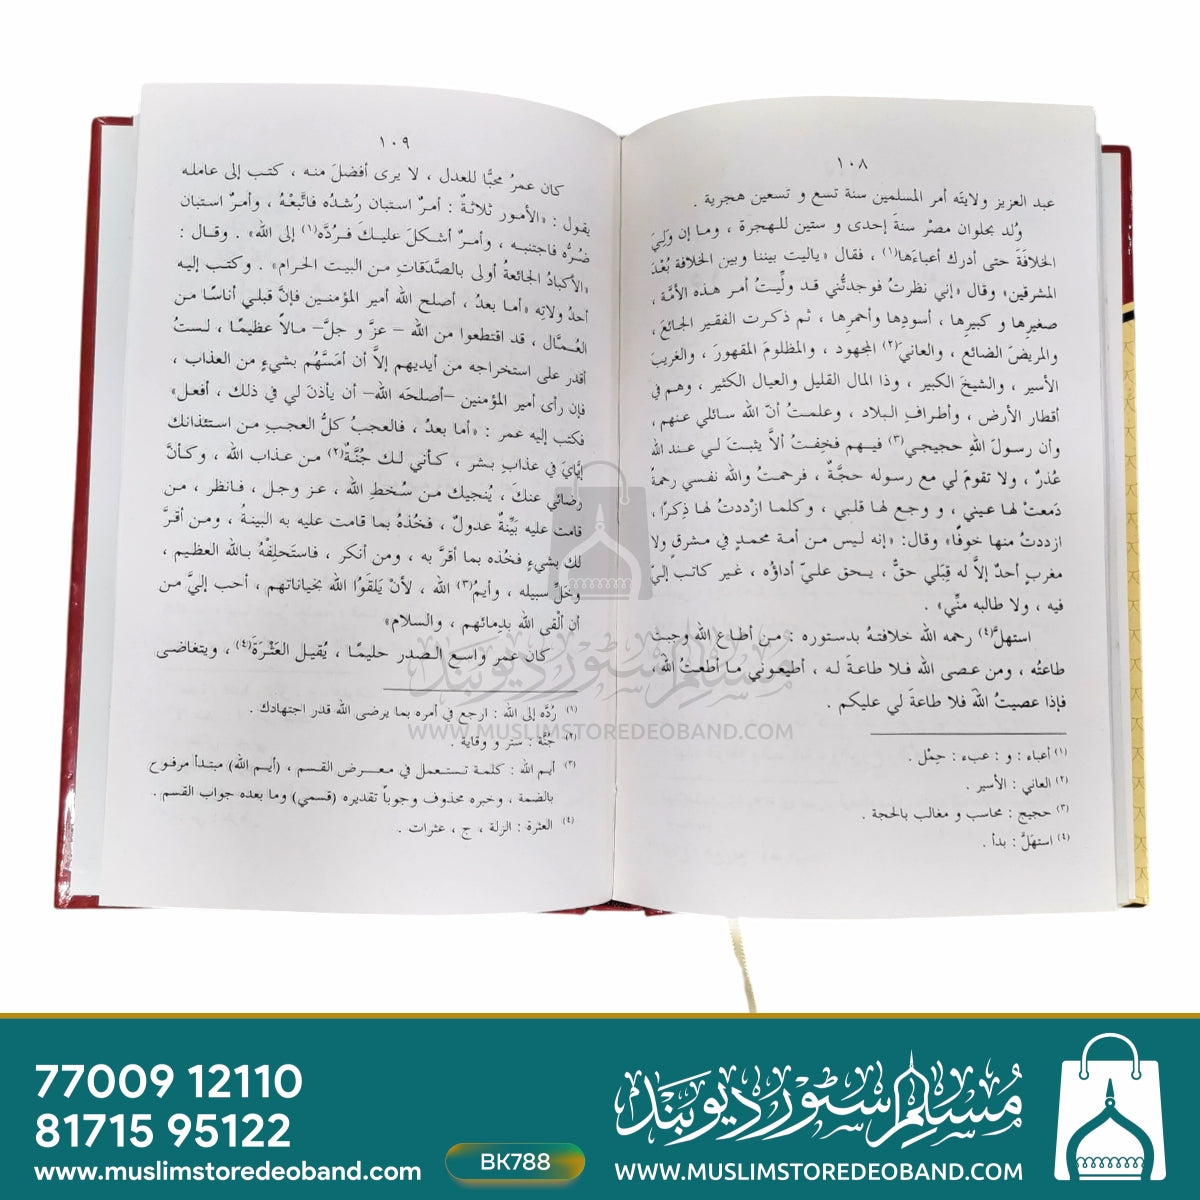 ١٠٨
عبد العزيز ولايتَه أمر المسلمين سنة تسع و تسعين هجرية .
وُلد بحلوان مصرْ سنةَ إحدى و ستين للهجرة ، وما إن وَلِيَ
الخلافَةَ حتى أدرك أعباءَها(١) ، فقال «ياليت بيننا وبين الخلافة بُعْدَ
المشرقين» وقال «إني نظرتُ فوجدتُّني قد ولِّيتُ أمر هذه الأمَّة ،
صغيرِها و كبيرِها ، أسودِها وأحمرِها ، ثم ذكرت الفقير الجائعَ ،
والمريضَ الضائع ، والعانيَ(٢) المجهود ، والمظلومَ المقهورَ ، والغريبَ
الأسير ، والشيخَ الكبير ، وذا المال القليل والعيال الكثير ، وهم في
أقطار الأرض ، وأطرافِ البلاد ، وعلمتُ أنّ الله سائلي عنهم ،
وأن رسولَ اللهِ حجيجي(٣) فيهم فخِفتُ ألاَّ يثبتَ لي عند الله
عُذرٌ ، ولا تقومَ لي مع رسوله حجَّةٌ ، فرحمتُ والله نفسي رحمةً
دَمعتْ لها عيني ، و وجع لها قلبي ، وكلما ازْددتُ لها ذِكرًا ،
ازددتُ منها خوفًا» وقال: «إنه ليس من أمة محمدٍ في مشرقٍ ولا
مغربٍ أحدٌ إلاَّ له قِبَلي حقٌّ ، يحق عليّ أداؤه ، غير كاتب إليّ
فيه ، ولا طالبه منِّي» .
استهلَّ(٤) رحمه الله خلافتهُ بدستوره : من أطاع الله وجبتْ
طاعتُه ، ومن عصى الله فلا طاعةَ له ، أطيعوني ما أطعتُ الله،
فإذا عصيتُ اللهَ فلا طاعةَ لي عليكم .
(١) أعباء : و : عبء : حِمْل .
(٢) العاني : الأسير .
(٣) حجيج : محاسب و مغالب بالحجة .
(٤) استهلَّ : بدأ .
١٠٩
كان عمرُ محبًّا للعدل ، لا يرى أفضلَ منه ، كتب إلى عامله
يقول : «الأمور ثلاثةٌ : أمرٌ استبان رشدُه فاتَّبعْهُ ، وأمرٌ استبان
ضُرُّه فاجتنبه ، وأمرٌ أشكلَ عليكَ فرُدَّه(١) إلى الله» . وقال :
«الأكبادُ الجائعةُ أولى بالصَّدَقاتِ من البيت الحرام» . وكتب إليه
أحدُ ولاته «أما بعدُ ، أصلح الله أمير المؤمنين فإنَّ قبلي أناسًا من
العُمَّال ، قد اقتطعوا من الله – عزَّ و جلَّ– مالاً عظيمًا ، لستُ
أقدر على استخراجه من أيديهم إلاَّ أن أمَسَّهُم بشيءٍ من العذاب ،
فإن رأى أمير المؤمنين –أصلحَه الله– أن يأذنَ لي في ذلك ، أفعل»
فكتب إليه عمر : «أما بعدُ ، فالعجبُ كلُّ العجبِ من استئذانك
إيَّايَ في عذابِ بشر ، كأني لك جُنَّةٌ(٢) من عذاب الله ، وكأنَّ
رضائي عنك ، يُنجيك من سُخطِ الله ، عز وجل ، فانظر ، من
قامت عليه بَيِّنةٌ عدولٌ ، فخُذهُ بما قامت عليه به البينةُ ، ومن أقرَّ
لك بشيءٍ فخُذه بما أقرَّ به ، ومن أنكر ، فاستَحلِفْهُ بالله العظيم ،
وخَلِّ سبيله ، وأيمُ(٣) الله ، لأنْ يَلقوُا الله بخياناتهم ، أحب إليَّ من
أن ألْقى الله بدِمائهم ، والسلام»
كان عمر واسع الصدر حليمًا ، يُقيل العَثْرةَ(٤) ، ويتغاضى
(١) رُدَّه إلى الله : ارجع في أمره بما يرضى الله قدر اجتهادك .
(٢) جُنَّة : ستر و وقاية .
(٣) أيم الله : كلمة تستعمل في معرض القسم ، (أيم الله) مبتدأ مرفوح
بالضمة ، وخبره محذوف وجوباً تقديره (قسمي) وما بعده جواب القسم .
(٤) العثرة : الزلة ، ج ، عثرات .
مسلم سٹور دیوبند
WWW.MUSLIMSTOREDEOBAND.COM
77009 12110
81715 95122
www.muslimstoredeoband.com
BK788
مسلم سٹور دیوبند
WWW.MUSLIMSTOREDEOBAND.COM